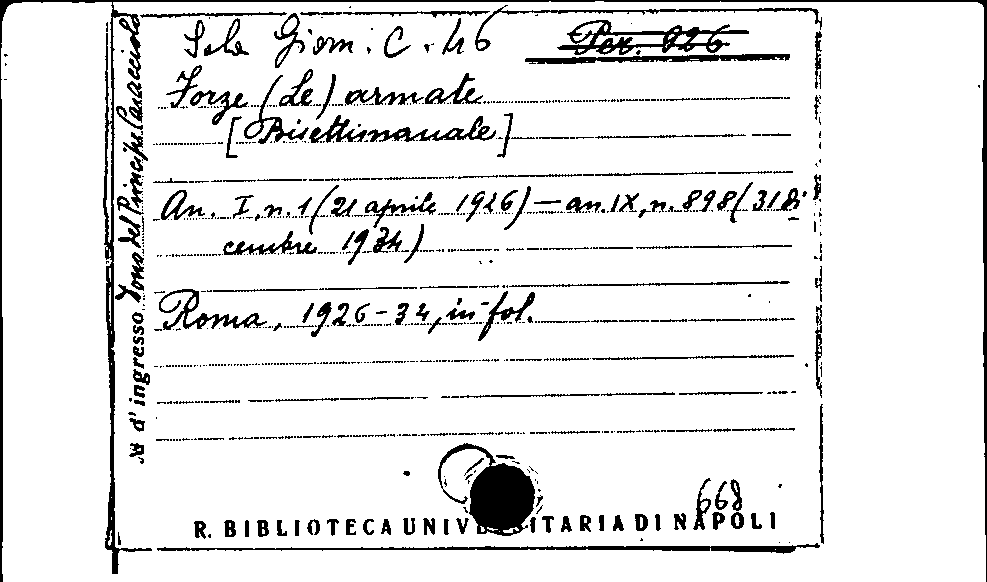 Sala Giorn. C. 46 Per. 926
Forze (Le) armate
[Bisettimanale]
An. I, n. 1 (21 aprile 1926) — an. IX, n. 898 (31 Di
cembre 1934)
Roma, 1926-34, in fol.
668
R. BIBLIOTECA UNIVERSITARIA DI NAPOLI
№ d'ingresso Dono del Principe Caracciolo